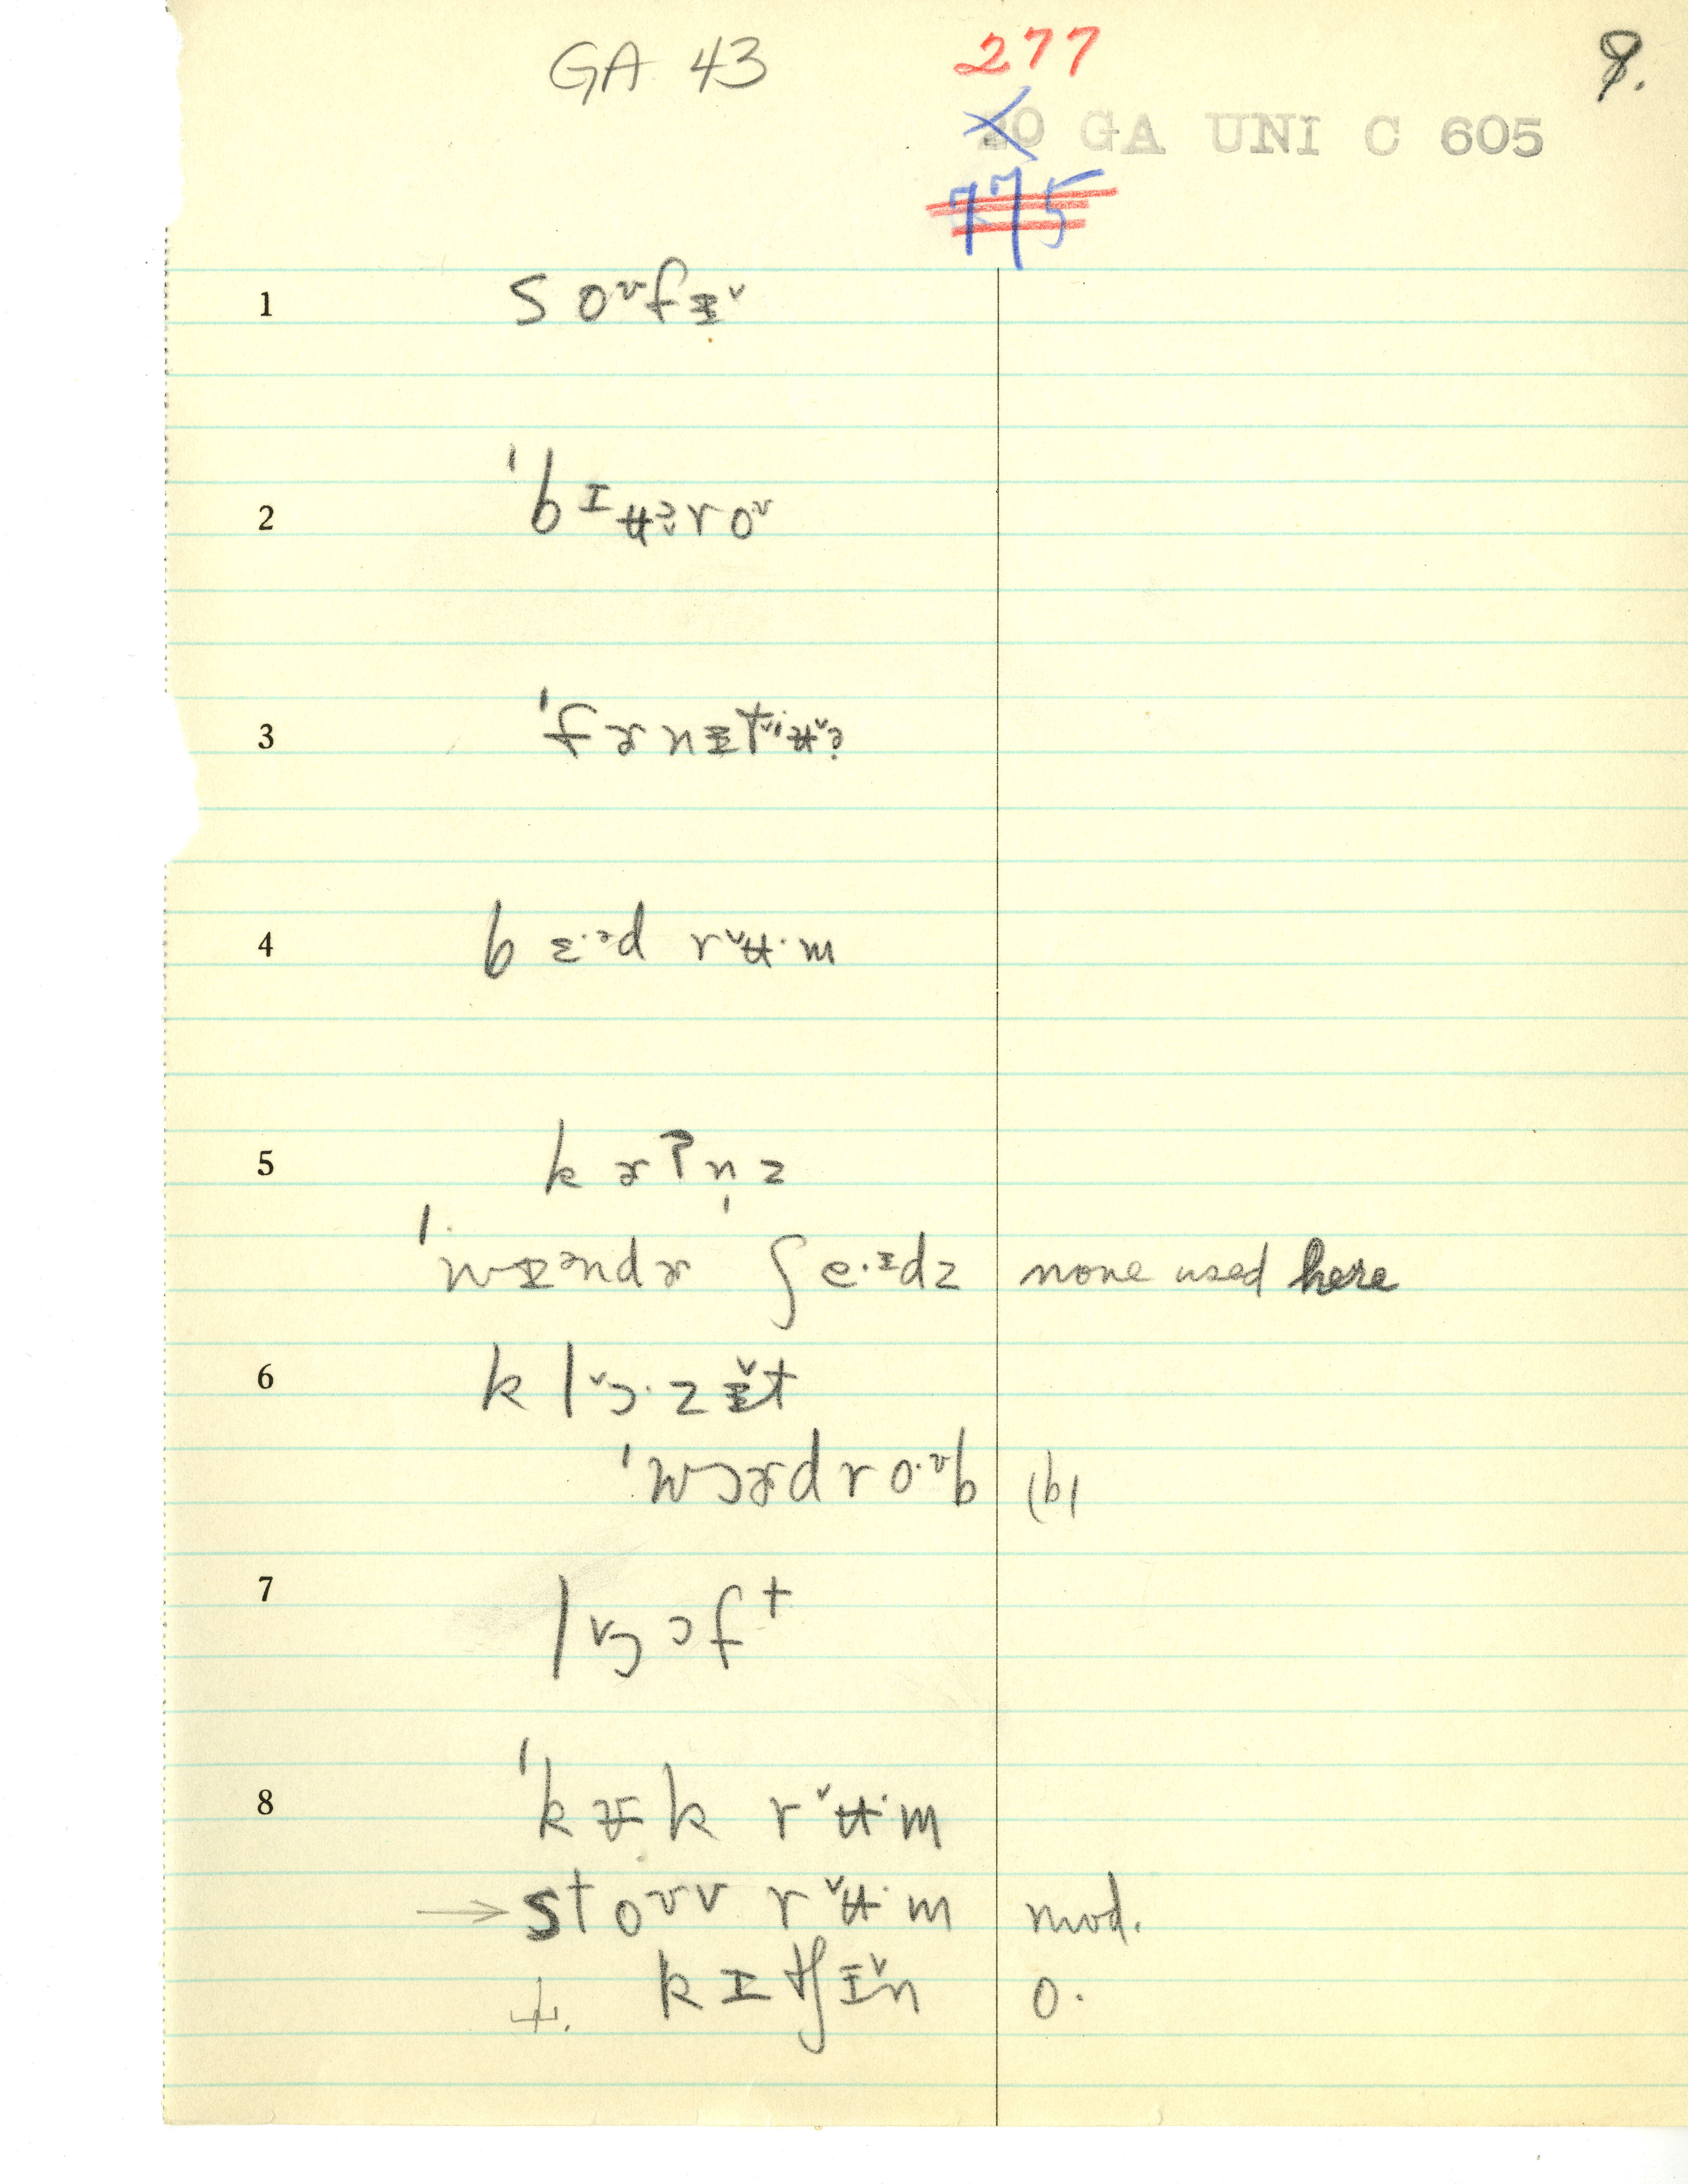 GA 43
277
8.
20 GA UNI C 605
775
1 s oᶷfɪ̵˅
2 ˈbɪʉə̬roᶷ
3 ˈfɚnɪ̵tʃʉ˅ɚ
4 bɛ·ᵊd r˅ʉ·m
5 kɚʔn̩z
ˈwɪᵊndɚ ʃe·ɪdz none used here
6 kl˅ɔ·zɪ̵˅t
ˈwɔɚdro·ᶷb (b)
7 l˅ɔɔft
8 ˈkʊk r˅ʉ·m
→ stoᶷv r˅ʉ·m mod.
kɪtʃɪ˅n o.